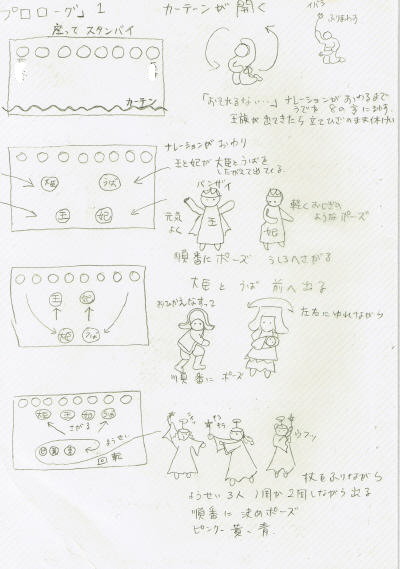 プロローグ」1
カーテンが開く
座って スタンバイ
イバラ
ふりまわす
カーテン
「おそれるない…」ナレーションがおわるまで
うでを 8の字に動かす。
王族が出てきたら立てひざのまま休けい
ナレーションがおわり
王と妃が大姫とうばを
したがえて出てくる。
大姫
うば
王
妃
バンザイ
元気よく
王
妃
軽くおじぎの
ようなポーズ
順番にポーズ うしろへさがる
大姫 と うば 前へ出る
王
妃
大姫
うば
おひかえなすって
左右にゆれながら
順番に ポーズ
大姫 王 妃 うば
さがる
ようせい
回転
キラキラ
ウフッ
杖をふりながら
ようせい 3人 1周か2周しながら出る
順番に 決めポーズ
ピンク、黄、青